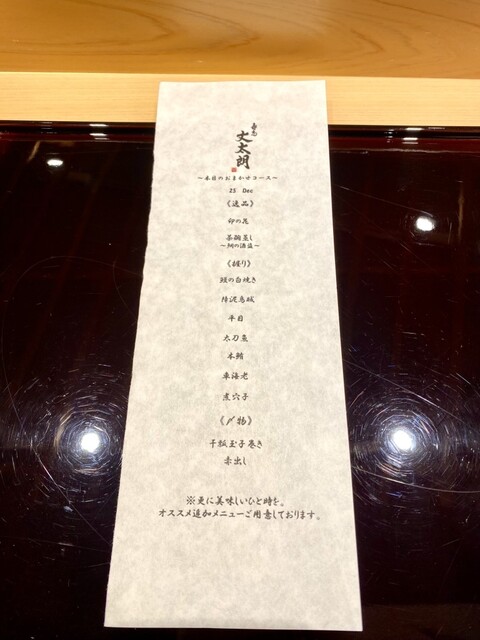 文太朗
〜本日のおまかせコース〜
25 Dec
《逸品》
卯の花
茶碗蒸し
《握り》
鰻の白焼き
障泥烏賊
平目
太刀魚
本鮪
車海老
煮穴子
《〆物》
干瓢玉子巻き
赤出し
※更に美味しいひと時を。
オススメ追加メニューご用意しております。